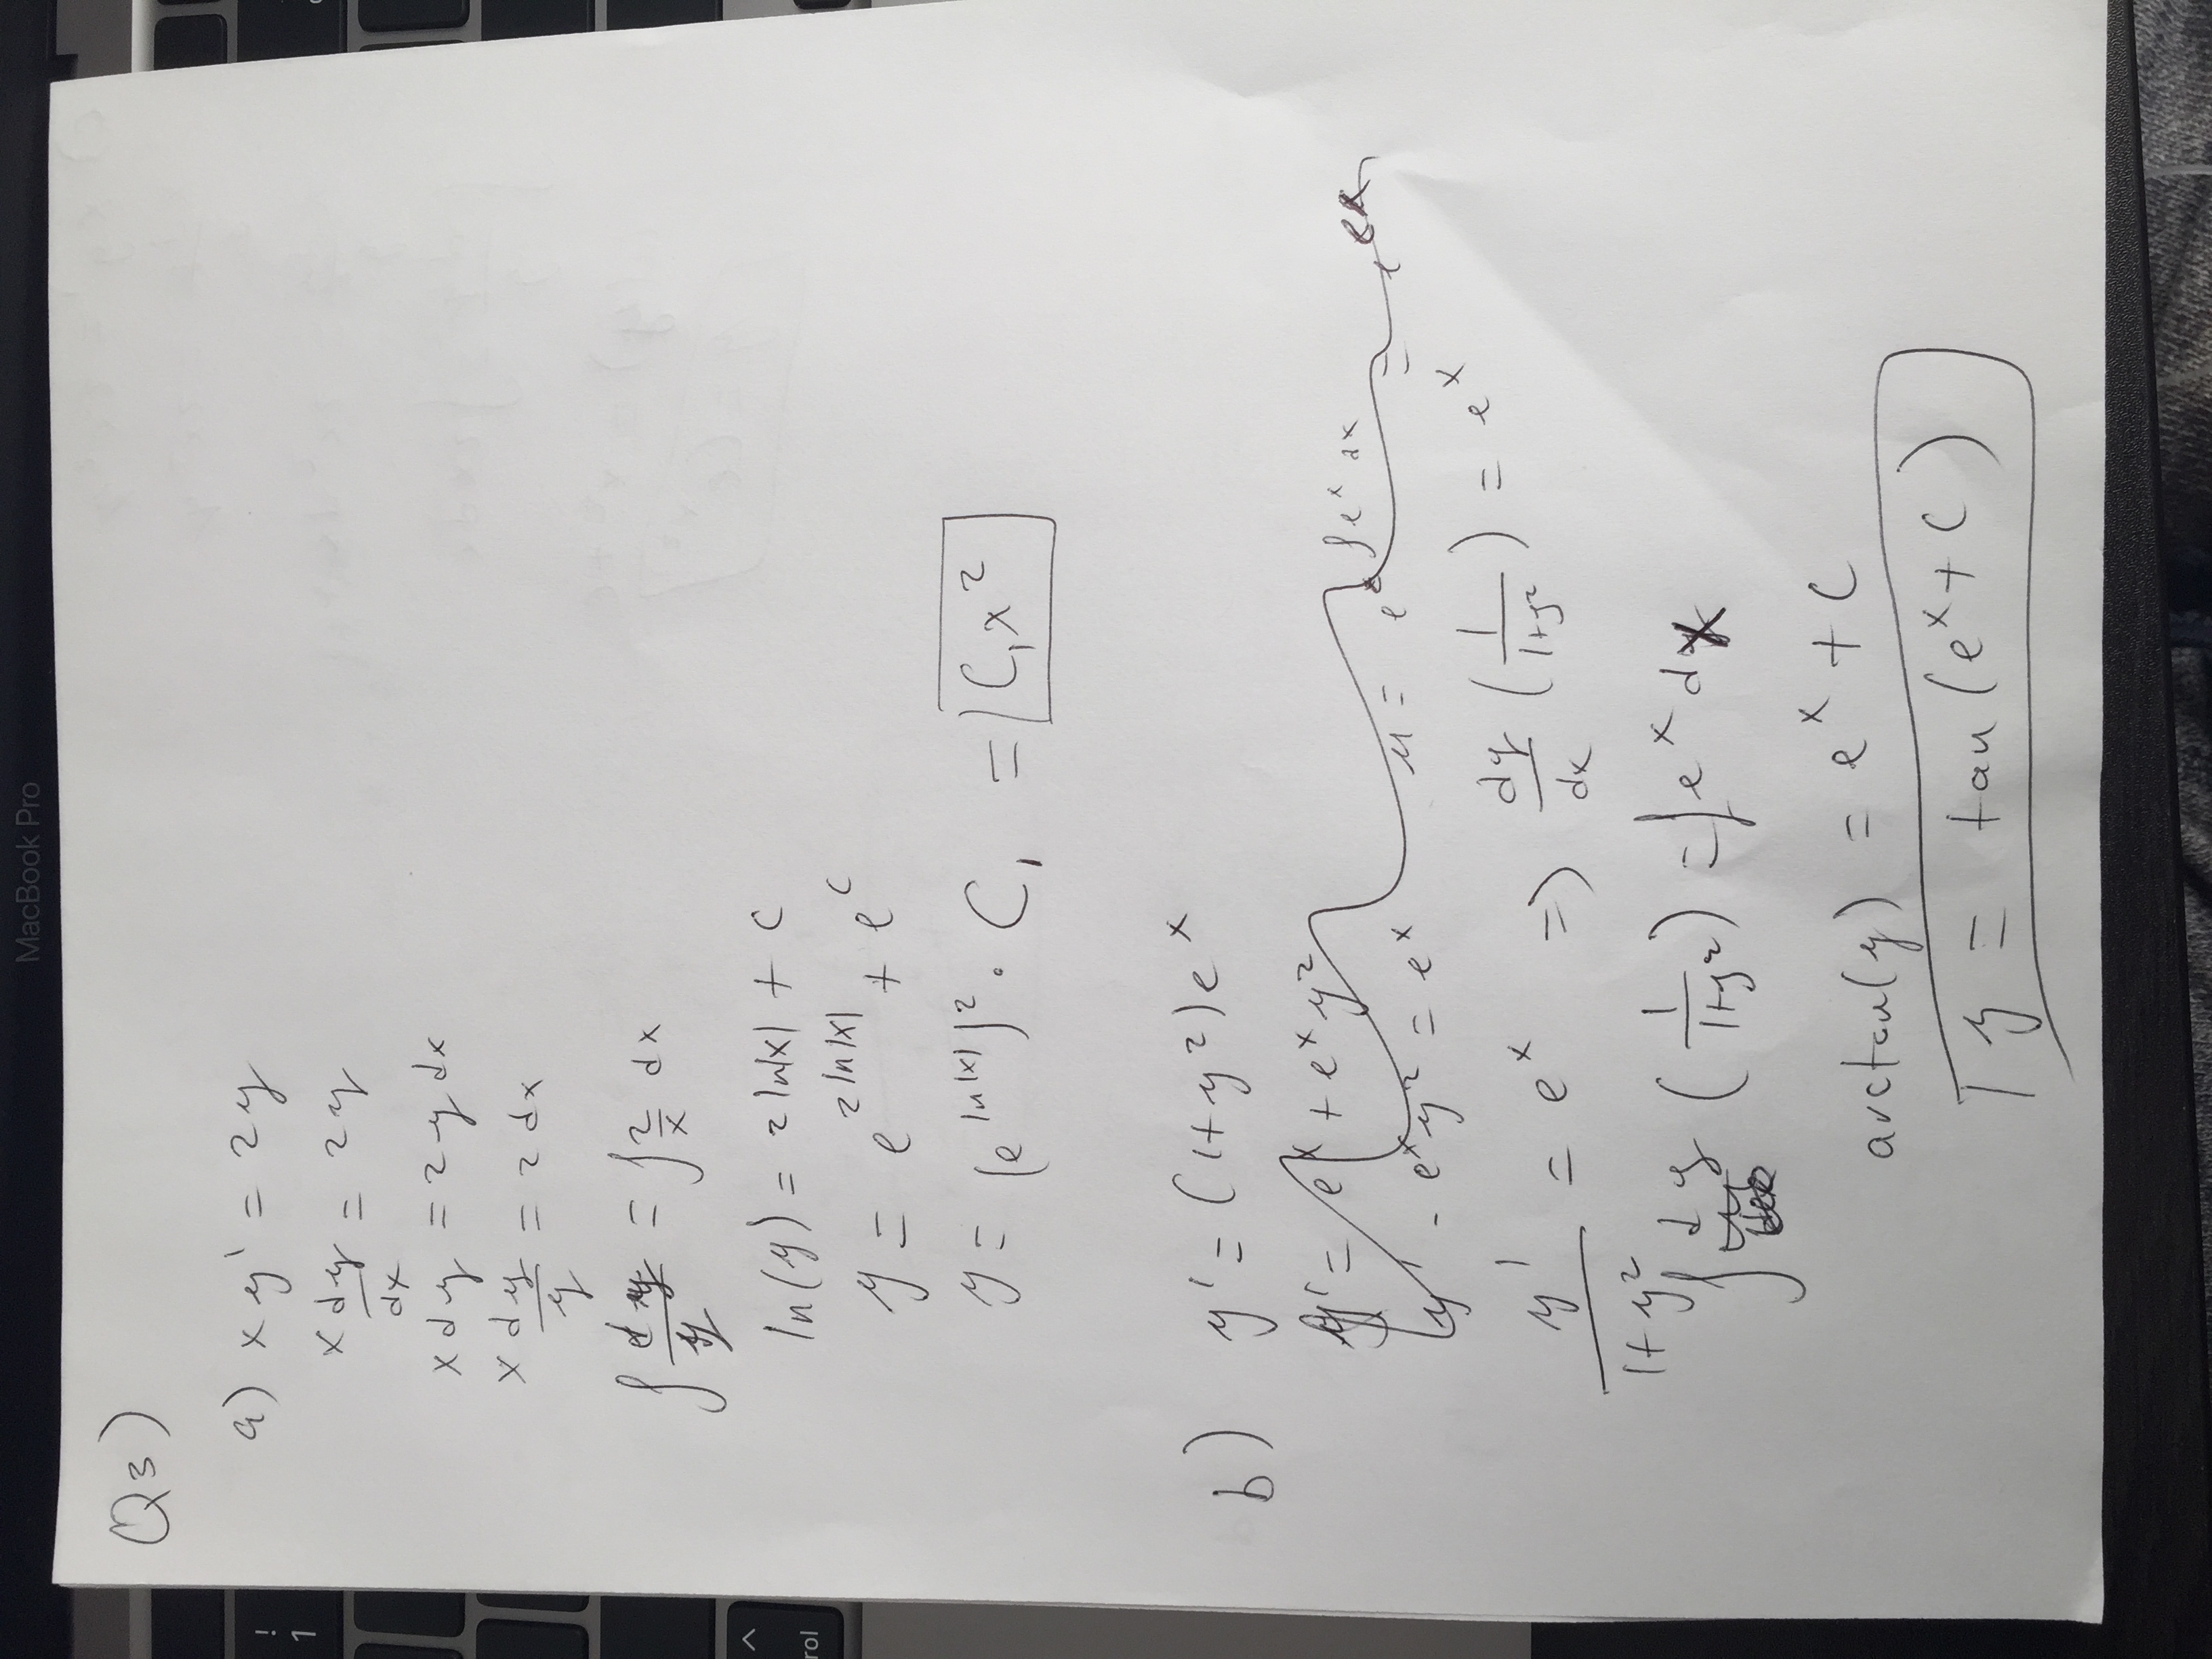 MacBook Pro
Q3)
a) x y' = 2y
x dy/dx = 2y
x dy = 2y dx
x dy/y = 2 dx
∫ dy/y = ∫ 2/x dx
ln(y) = 2 ln|x| + C
y = e^(2 ln|x|) + e^C
y = (e^(ln|x|))^2 · C₁ = C₁x²
b) y' = (1+y²)e^x
y' = e^x + e^x y²
y' - e^x y² = e^x μ = e^(∫e^x dx) = e^(e^x)
y'/(1+y²) = e^x => dy/dx (1/(1+y²)) = e^x
∫ dy (1/(1+y²)) = ∫ e^x dx
arctan(y) = e^x + C
y = tan(e^x + C)
!
1
^
rol